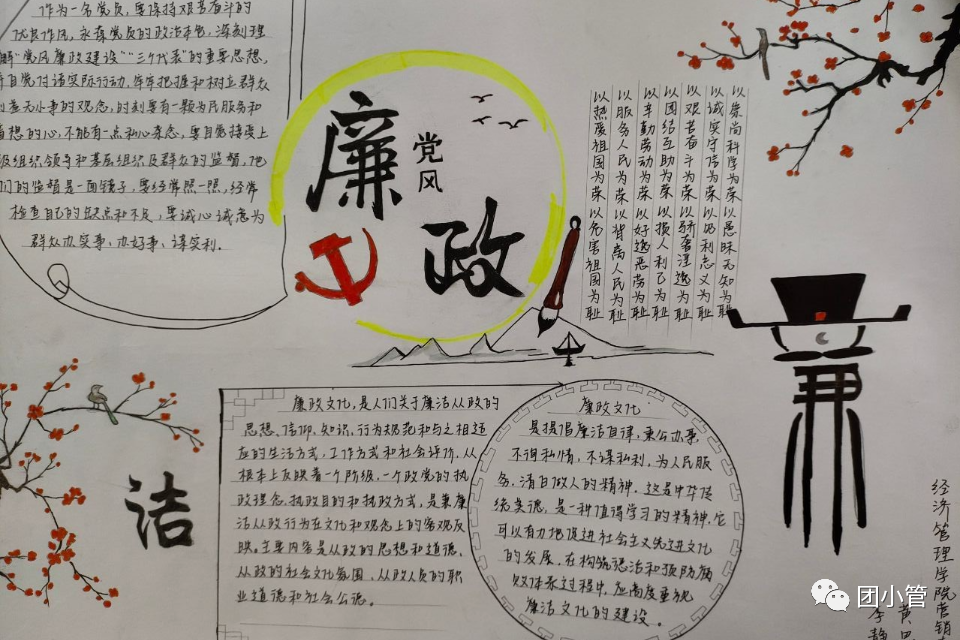 作为一名党员,要保持艰苦奋斗的
优良作风,永葆党员的政治本色,深刻理
解"党风廉政建设""三个代表"的重要思想,
自觉付诸实际行动,牢牢把握和树立群众
无小事的观念,时刻要有一颗为民服务和
想的心,不能有一点私心杂念,要自觉接受上
级组织领导和基层组织及群众的监督,他
们的监督是一面镜子,要经常照一照,经常
检查自己的缺点和不足,要诚心诚意为
群众办实事、办好事、谋实利.
廉
党风
政
以热爱祖国为荣 以危害祖国为耻
以服务人民为荣 以背离人民为耻
以辛勤劳动为荣 以好逸恶劳为耻
以团结互助为荣 以损人利己为耻
以艰苦奋斗为荣 以骄奢淫逸为耻
以诚实守信为荣 以见利忘义为耻
以崇尚科学为荣 以愚昧无知为耻
廉
洁
廉政文化,是人们关于廉洁从政的
思想、信仰、知识、行为规范和与之相适
应的生活方式、工作方式和社会评价,从
根本上反映着一个阶级、一个政党的执
政理念、执政目的和执政方式,是兼廉
洁从政行为在文化和观念上的客观反
映.主要内容是从政的思想和道德、
从政的社会文化氛围、从政人员的职
业道德和社会公德。
廉政文化
是提倡廉洁自律,秉公办事,
不徇私情,不谋私利,为人民服
务,清白做人的精神,这是中华传
统美德,是一种值得学习的精神,它
可以有力地促进社会主义先进文化
的发展,在构筑惩治和预防腐
败体系过程中,应高度重视
廉洁文化的建设。
经济管理学院营销
黄
李静
团小管